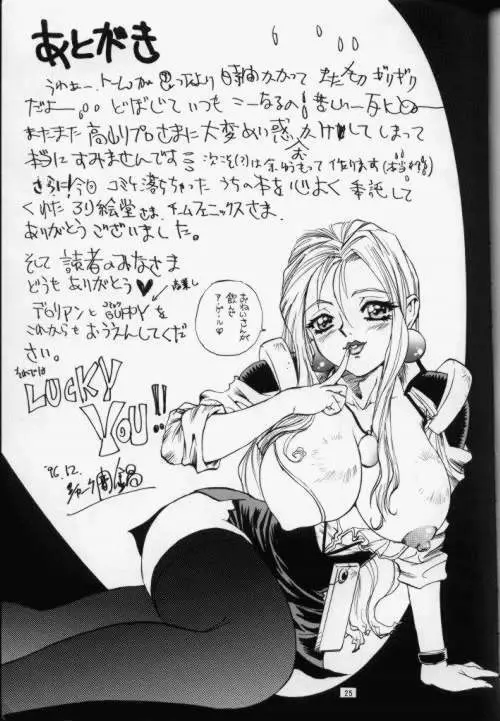 あとがき
うわぁー、トーンが思ったより時間かかってまたもやギリギリ
だよー どぼじていつもこーなるの!苦しい
またまた高山プロさまに大変めい惑おかけしてしまって
本当にすみませんです 次こそ(?)は余ゆうもって作ります
さらに!今回コミケ落ちちゃったうちの本を心よく委託して
くれたろり絵堂さま、チームフェニックスさま、
ありがとうございました。
そして読者のみなさま
どうもありがとう♥
デロリアンと PUPPY を
これからもおうえんしてくだ
さい。
それでは
LUCKY
YOU!!
'96.12.
おねいさんが
飲ま
アゲール♡
25